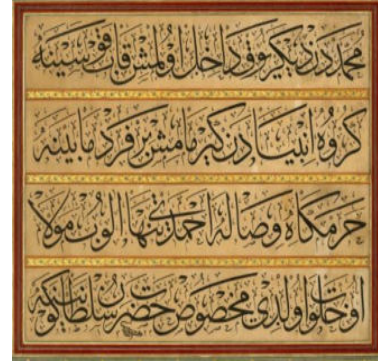 محمددر دیكر یوقدر داخل اولمش قاب قوسینه
كروه انبیادن كیرمامش بر فرد مابینه
حرمكاه وصاله احمدی تنها الوب مولا
او خلوت اولدی مخصوص حضرت سلطان كونینه